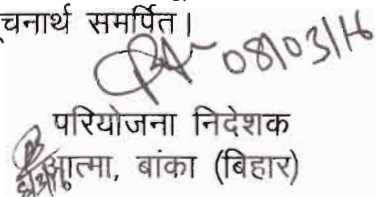 चनार्थ समर्पित।
08/03/16
परियोजना निदेशक
आत्मा, बांका (बिहार)